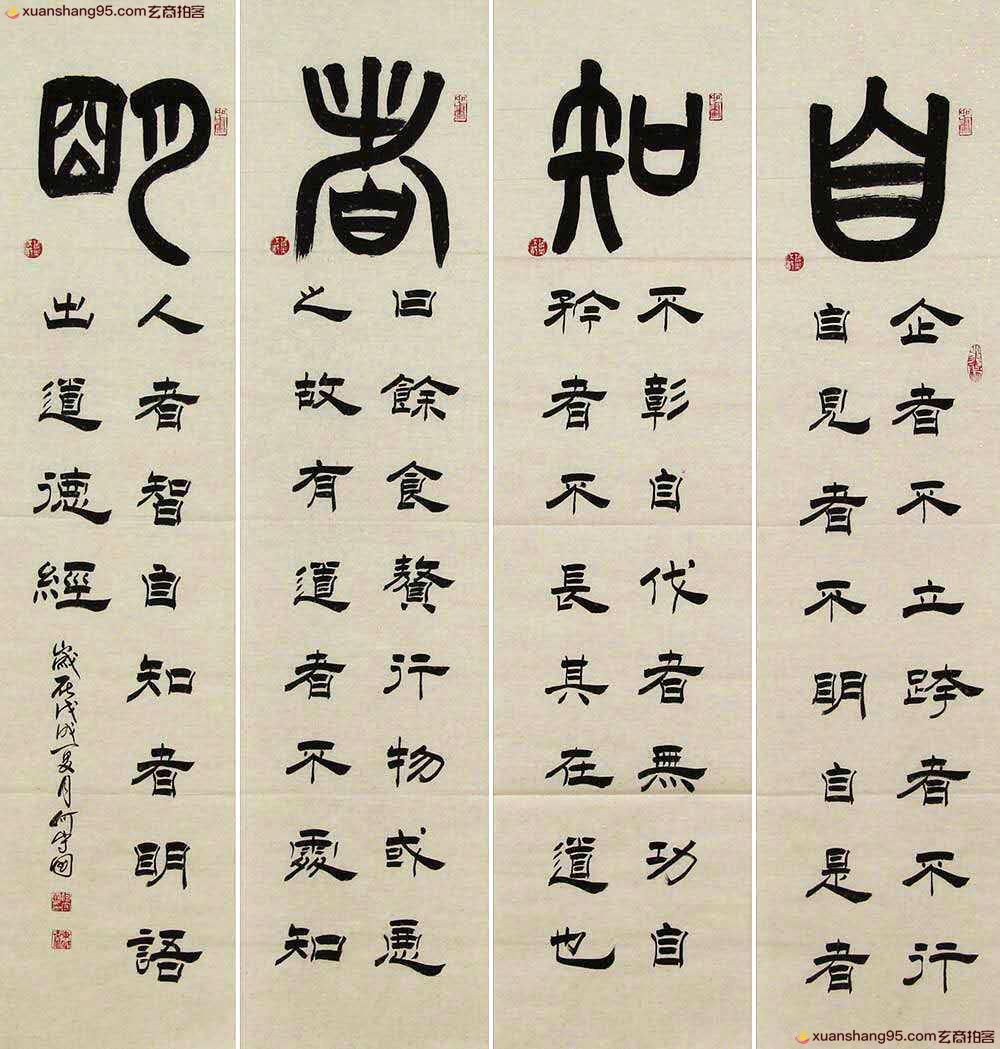 xuanshang95.com玄商拍客
自
企者不立跨者不行
自見者不明自是者
知
不彰自伐者無功自
矜者不長其在道也
者
曰餘食贅行物或惡
之故有道者不處知
明
人者智自知者明語
出道德經
歲在戊戌夏月何守國
xuanshang95.com玄商拍客